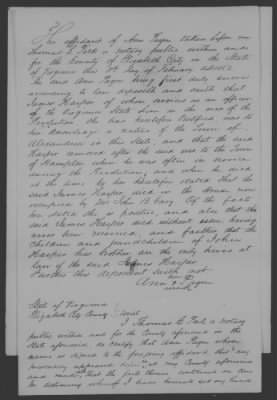 The affidavit of Ann Pagee taken before me
Thomas C. Peek a notary public within and
for the County of Elizabeth City in the State
of Virginia this day of February 1852
the said Ann Pagee being first duly sworn
according to law deposeth and saith that
James Harper of whose services as an officer
of the Virginia State Line in the war of the
Revolution she has heretofore testified was to
her knowledge a native of the Town of
Alexandria in this State, and that the said
Harper removed after the said war to the Town
of Hampton where he was often in service
during the Revolution, and when he died
at the time by her heretofore stated that the
said James Harper died in the House now
occupied by Mr John B Cary of the facts
here stated she is positive, and also that the
said James Harper died without issue having
never been married, and further that the
children and grandchildren of John
Harper his brother are the only heirs at
law of the said James Harper
Further this deponent saith not
Ann Pagee
mark
State of Virginia
Elizabeth City County to wit
I Thomas C. Peek a notary
public within and for the County aforesaid in the
State aforesaid, do certify that Ann Pagee whose
name is signed to the foregoing affidavit, this day
personally appeared before me in my County aforesaid
and made oath that the facts therein contained are true
In testimony whereof I have hereunto set my hand